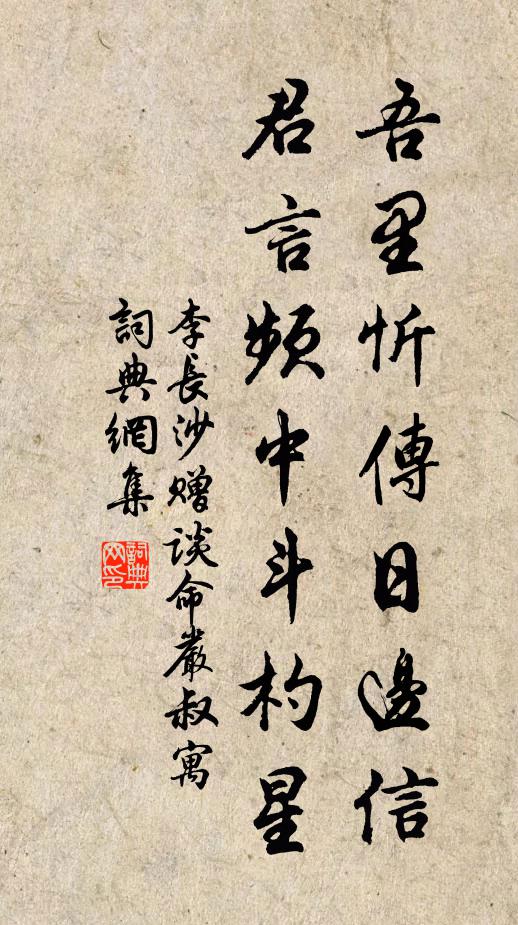 吾里忻傳日邊信
君言頻中斗杓星
李長沙贈談命嚴叔寓
詞典網集
詞典網印